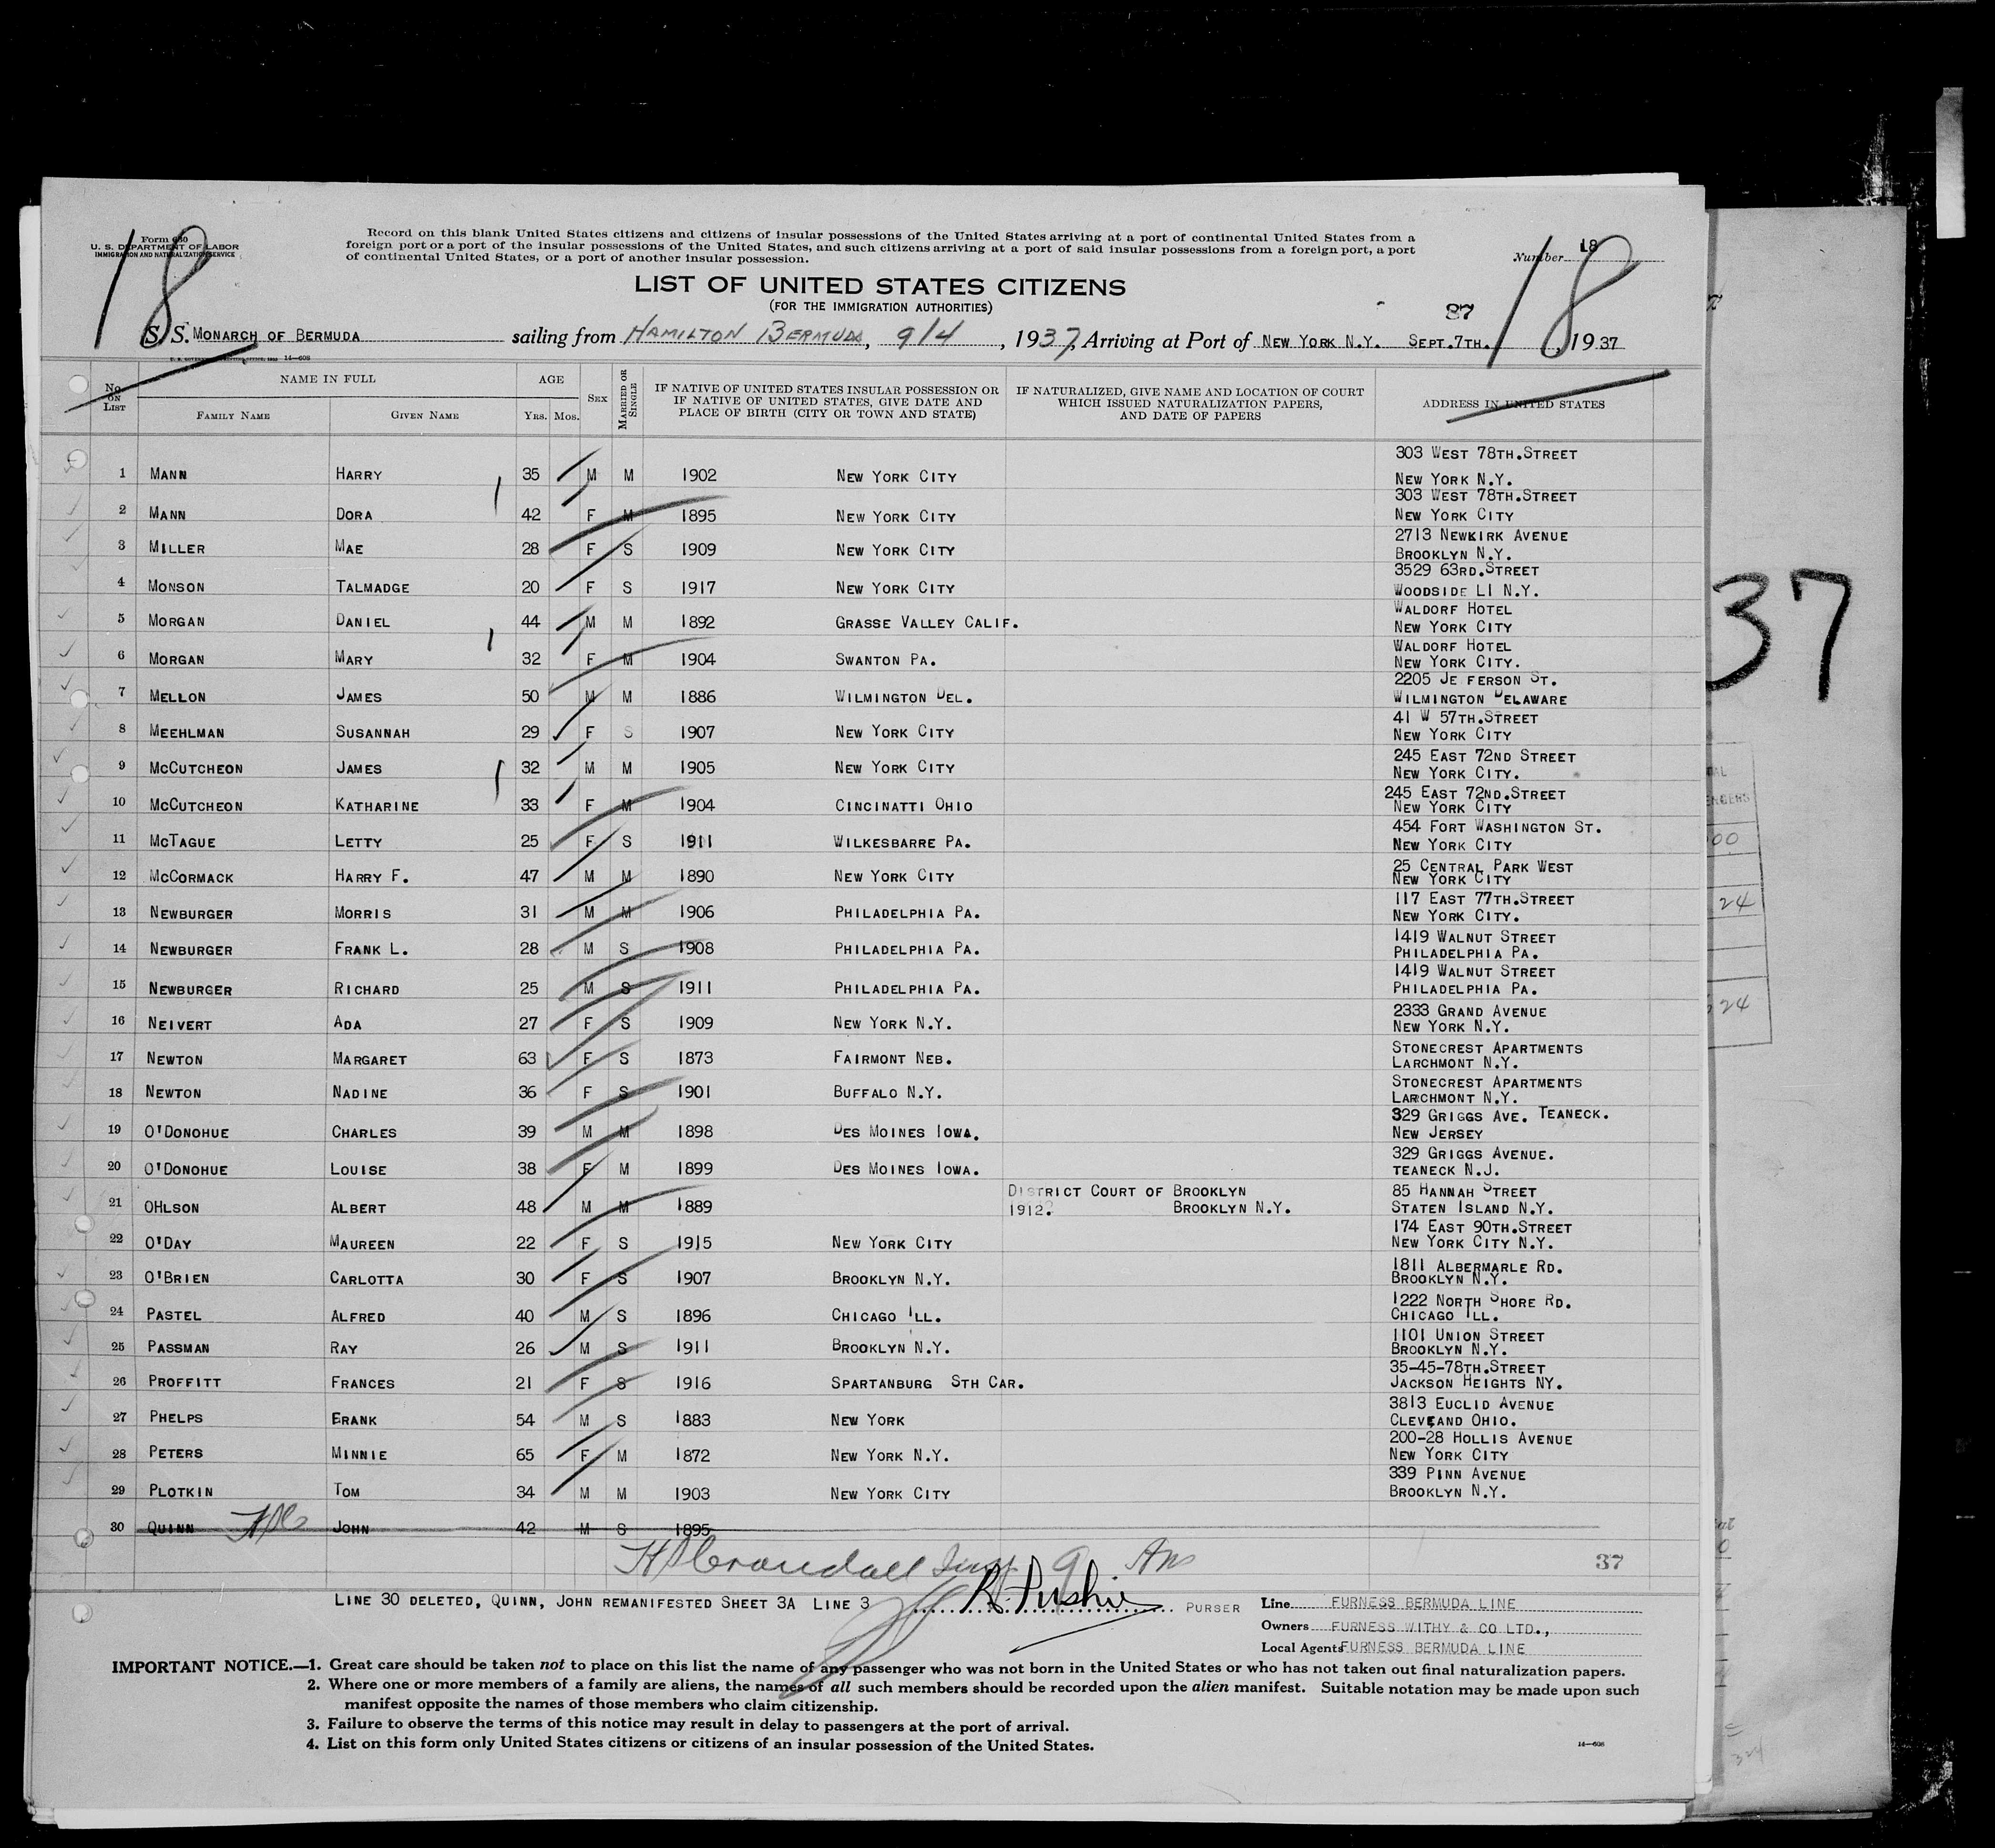 Form 630
U. S. DEPARTMENT OF LABOR
IMMIGRATION AND NATURALIZATION SERVICE
18
Record on this blank United States citizens and citizens of insular possessions of the United States arriving at a port of continental United States from a
foreign port or a port of the insular possessions of the United States, and such citizens arriving at a port of said insular possessions from a foreign port, a port
of continental United States, or a port of another insular possession.
Number 18
18
LIST OF UNITED STATES CITIZENS
(FOR THE IMMIGRATION AUTHORITIES)
87
S. S. MONARCH OF BERMUDA sailing from HAMILTON BERMUDA, 9/4, 1937, Arriving at Port of NEW YORK N.Y. SEPT.7TH., 1937
14—608
No. ON LIST NAME IN FULL AGE SEX MARRIED OR SINGLE IF NATIVE OF UNITED STATES INSULAR POSSESSION OR IF NATIVE OF UNITED STATES, GIVE DATE AND PLACE OF BIRTH (CITY OR TOWN AND STATE) IF NATURALIZED, GIVE NAME AND LOCATION OF COURT WHICH ISSUED NATURALIZATION PAPERS, AND DATE OF PAPERS ADDRESS IN UNITED STATES
FAMILY NAME GIVEN NAME YRS. MOS.
303 WEST 78TH.STREET
1 MANN HARRY 35 M M 1902 NEW YORK CITY NEW YORK N.Y.
303 WEST 78TH.STREET
2 MANN DORA 42 F M 1895 NEW YORK CITY NEW YORK CITY
2713 NEWKIRK AVENUE
3 MILLER MAE 28 F S 1909 NEW YORK CITY BROOKLYN N.Y.
3529 63RD.STREET
4 MONSON TALMADGE 20 F S 1917 NEW YORK CITY WOODSIDE LI N.Y.
WALDORF HOTEL
5 MORGAN DANIEL 44 M M 1892 GRASSE VALLEY CALIF. NEW YORK CITY
WALDORF HOTEL
6 MORGAN MARY 32 F M 1904 SWANTON PA. NEW YORK CITY.
2205 JE FERSON ST.
7 MELLON JAMES 50 M M 1886 WILMINGTON DEL. WILMINGTON DELAWARE
41 W 57TH.STREET
8 MEEHLMAN SUSANNAH 29 F S 1907 NEW YORK CITY NEW YORK CITY
245 EAST 72ND STREET
9 MCCUTCHEON JAMES 32 M M 1905 NEW YORK CITY NEW YORK CITY.
245 EAST 72ND.STREET
10 MCCUTCHEON KATHARINE 33 F M 1904 CINCINATTI OHIO NEW YORK CITY
454 FORT WASHINGTON ST.
11 MCTAGUE LETTY 25 F S 1911 WILKESBARRE PA. NEW YORK CITY
25 CENTRAL PARK WEST
12 MCCORMACK HARRY F. 47 M M 1890 NEW YORK CITY NEW YORK CITY
117 EAST 77TH.STREET
13 NEWBURGER MORRIS 31 M M 1906 PHILADELPHIA PA. NEW YORK CITY.
1419 WALNUT STREET
14 NEWBURGER FRANK L. 28 M S 1908 PHILADELPHIA PA. PHILADELPHIA PA.
1419 WALNUT STREET
15 NEWBURGER RICHARD 25 M S 1911 PHILADELPHIA PA. PHILADELPHIA PA.
2333 GRAND AVENUE
16 NEIVERT ADA 27 F S 1909 NEW YORK N.Y. NEW YORK N.Y.
STONECREST APARTMENTS
17 NEWTON MARGARET 63 F S 1873 FAIRMONT NEB. LARCHMONT N.Y.
STONECREST APARTMENTS
18 NEWTON NADINE 36 F S 1901 BUFFALO N.Y. LARCHMONT N.Y.
329 GRIGGS AVE. TEANECK.
19 O'DONOHUE CHARLES 39 M M 1898 DES MOINES IOWA. NEW JERSEY
329 GRIGGS AVENUE.
20 O'DONOHUE LOUISE 38 F M 1899 DES MOINES IOWA. TEANECK N.J.
DISTRICT COURT OF BROOKLYN 85 HANNAH STREET
21 OHLSON ALBERT 48 M M 1889 1912. BROOKLYN N.Y. STATEN ISLAND N.Y.
174 EAST 90TH.STREET
22 O'DAY MAUREEN 22 F S 1915 NEW YORK CITY NEW YORK CITY N.Y.
1811 ALBERMARLE RD.
23 O'BRIEN CARLOTTA 30 F S 1907 BROOKLYN N.Y. BROOKLYN N.Y.
1222 NORTH SHORE RD.
24 PASTEL ALFRED 40 M S 1896 CHICAGO ILL. CHICAGO ILL.
1101 UNION STREET
25 PASSMAN RAY 26 M S 1911 BROOKLYN N.Y. BROOKLYN N.Y.
35-45-78TH.STREET
26 PROFFITT FRANCES 21 F S 1916 SPARTANBURG STH CAR. JACKSON HEIGHTS NY.
3813 EUCLID AVENUE
27 PHELPS FRANK 54 M S 1883 NEW YORK CLEVEAND OHIO.
200-28 HOLLIS AVENUE
28 PETERS MINNIE 65 F M 1872 NEW YORK N.Y. NEW YORK CITY
339 PINN AVENUE
29 PLOTKIN TOM 34 M M 1903 NEW YORK CITY BROOKLYN N.Y.
30 QUINN JOHN 42 M S 1895
37
LINE 30 DELETED, QUINN, JOHN REMANIFESTED SHEET 3A LINE 3 PURSER
Line FURNESS BERMUDA LINE
Owners FURNESS WITHY & CO LTD.,
Local Agents FURNESS BERMUDA LINE
IMPORTANT NOTICE.—1. Great care should be taken not to place on this list the name of any passenger who was not born in the United States or who has not taken out final naturalization papers.
2. Where one or more members of a family are aliens, the names of all such members should be recorded upon the alien manifest. Suitable notation may be made upon such
manifest opposite the names of those members who claim citizenship.
3. Failure to observe the terms of this notice may result in delay to passengers at the port of arrival.
4. List on this form only United States citizens or citizens of an insular possession of the United States.
14—608
37
24
24